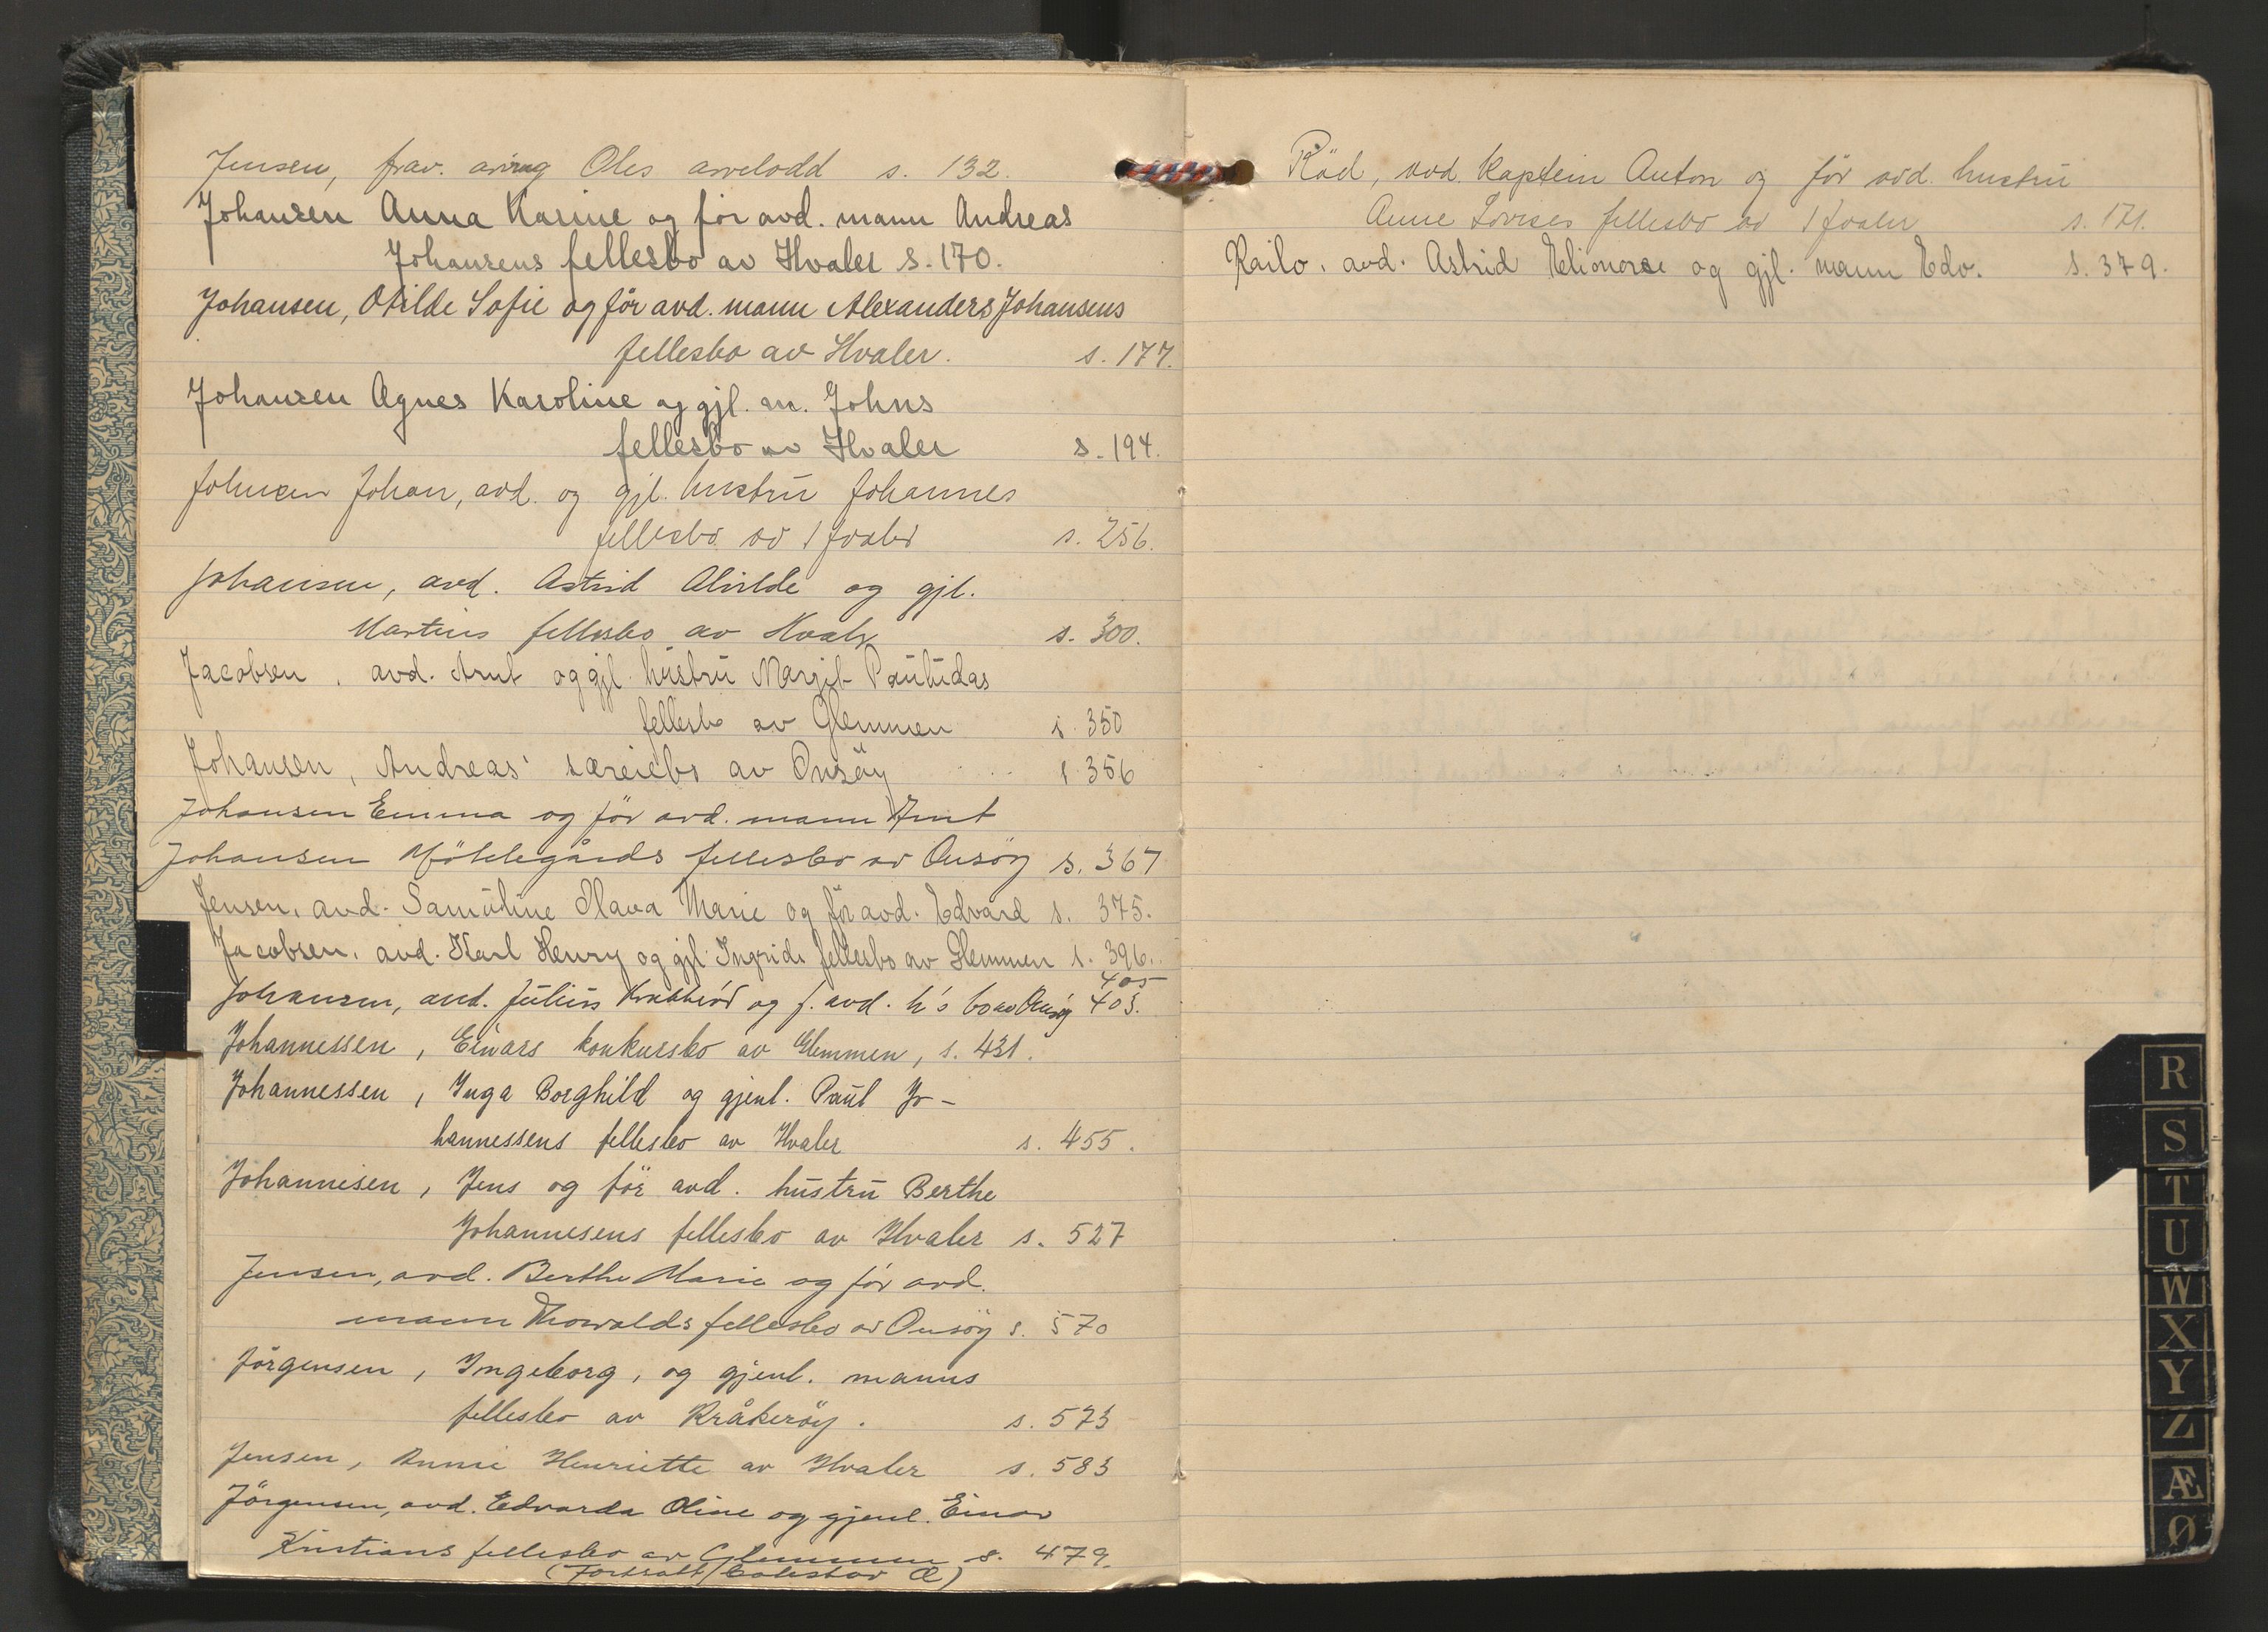 Jensen, frav. arving Oles arvelodd s. 132.
Johansen Anna Karine og før avd. mann Andreas
Johansens fellesbo av Hvaler s. 170.
Johansen, Otilde Sofie og før avd. mann Alexanders Johansens
fellesbo av Hvaler. s. 177.
Johansen Agnes Karoline og gjl. m. Johns
fellesbo av Hvaler s. 194.
Johnsen Johan, avd. og gjl. hustru Johannes
fellesbo av Hvaler s. 256.
Johansen, avd. Astrid Alvilde og gjl.
Martins fellesbo av Hvaler s. 300.
Jacobsen, avd. Arnt og gjl. hustru Margit Paulidas
fellesbo av Glemmen s. 350
Johansen, Andreas' særeiebo av Onsöy s. 356
Johansen Emma og för avd. mann Arnt
Johansen Möklegårds fellesbo av Onsöy s. 367
Jensen, avd. Samuline Olava Marie og för avd. Edvard s. 375.
Jacobsen, avd. Karl Henry og gjl. Ingrids fellesbo av Glemmen s. 396.
405
Johansen, avd. Julius og f. avd. h's bo av Onsöy 403.
Johannessen, Einars konkursbo av Glemmen, s. 431.
Johannessen, Inga Borghild og gjenl. Paul Jo-
hannessens fellesbo av Hvaler s. 455.
Johannesen, Jens og för avd. hustru Berthe
Johannesens fellesbo av Hvaler s. 527
Jensen, avd. Berthe Marie og för avd.
mann Thorvalds fellesbo av Onsöy s. 570
Jörgensen, Ingeborg, og gjenl. manns
fellesbo av Kråkeröy. s. 573
Jensen, Annie Henriette av Hvaler s. 583
Jörgensen, avd. Edvarda Oline og gjenl. Einar
Kristians fellesbo av Glemmen s. 479.
(Fortsatt bokstav Æ)
Röd, avd. Kaptein Anton og för avd. hustru
Anne Lovises fellesbo av Hvaler s. 171.
Railo, avd. Astrid Elionore og gjl. mann Edv. s. 379.
R
S
T
U
W
X
Y
Z
Æ
Ø